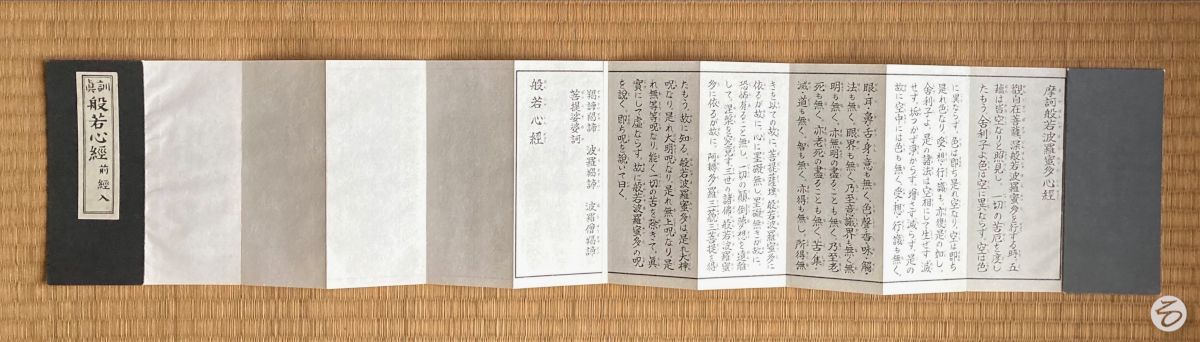 摩訶般若波羅蜜多心經
觀自在菩薩、深般若波羅蜜多を行ずる時、五
蘊は皆空なりと照見し、一切の苦厄を度し
たもう。舍利子よ、色は空に異ならず、空は色
に異ならず。色は即ち是れ空なり、空は即ち
是れ色なり。受・想・行・識も、亦復是の如し。
舍利子よ、是の諸法は空相にして、生ぜず、滅
せず、垢つかず、淨からず、增さず、減らず。是の
故に、空中には、色も無く、受・想・行・識も無く、
眼・耳・鼻・舌・身・意も無く、色・聲・香・味・觸・
法も無く、眼界も無く、乃至、意識界も無く、無
明も無く、亦無明の盡ることも無く、乃至、老
死も無く、亦老死の盡ることも無く、苦・集・
滅・道も無く、智も無く、亦得も無し。所得無
きを以ての故に、菩提薩埵は、般若波羅蜜多に
依るが故に、心に罣礙無し、罣礙無きが故に、
恐怖有ること無し、一切の顛倒夢想を遠離
して、涅槃を究竟す。三世の諸佛も、般若波羅蜜
多に依るが故に、阿耨多羅三藐三菩提を得
たもう。故に知る、般若波羅蜜多は、是れ大神
呪なり、是れ大明呪なり、是れ無上呪なり、是
れ無等等呪なり。能く一切の苦を除きて、眞
實にして虛ならず。故に、般若波羅蜜多の呪
を說く、即ち呪を說いて曰く、
羯諦羯諦 波羅羯諦 波羅僧羯諦
菩提娑婆訶
般若心經
訓眞 般若心經 前經入